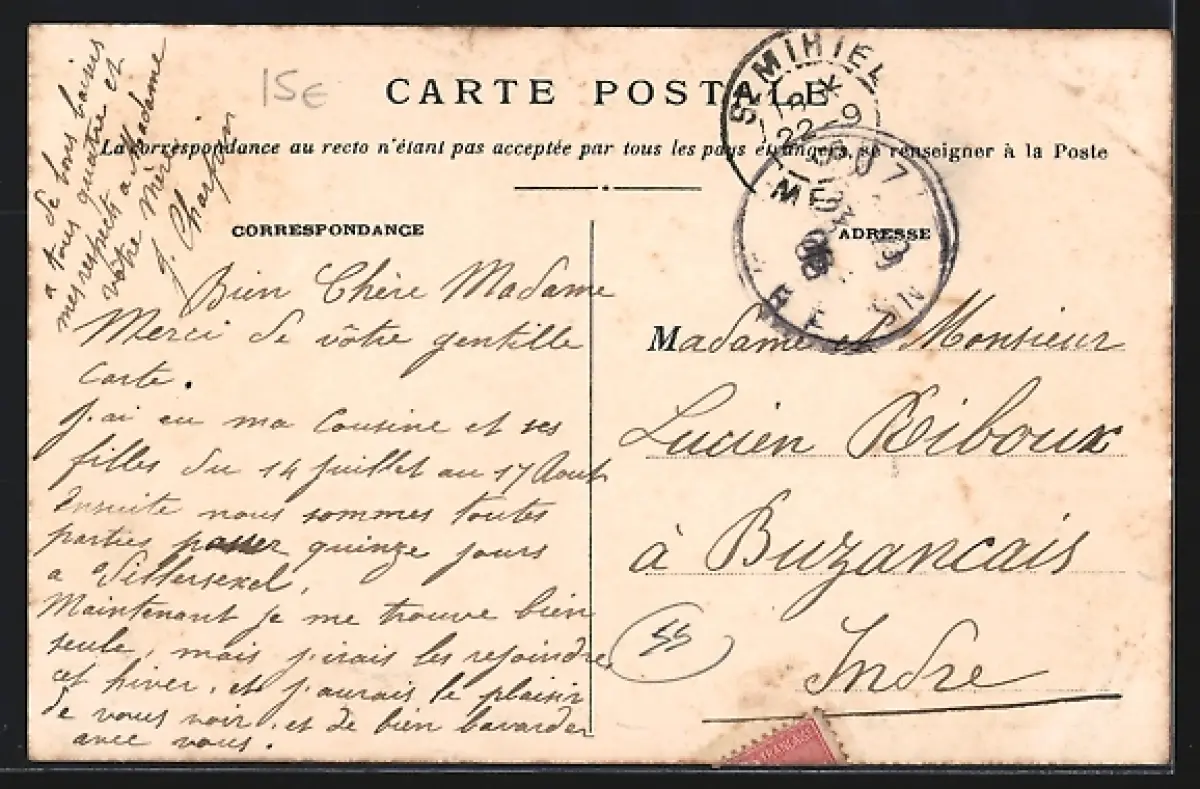 15€
CARTE POSTALE
La correspondance au recto n'étant pas acceptée par tous les pays étrangers, se renseigner à la Poste
CORRESPONDANCE
ADRESSE
De bons baisers
a tous quatre et
mes respects a Madame
vôtre Mère
J.
Bien Chère Madame
Merci de vôtre gentille
Carte.
J.ai eu ma Cousine et ses
filles du 14 Juillet au 17 Aout
Ensuite nous sommes toutes
parties passer quinze jours
a Villersexel,
Maintenant je me trouve bien
seule, mais j.irais les rejoindre
cet hiver. et j.aurais le plaisir
de vous voir. et de bien bavarder
avec vous.
Madame et Monsieur
Lucien Riboux
à Buzancais
Indre
55
ST MIHIEL
22-9
FRANÇAISE